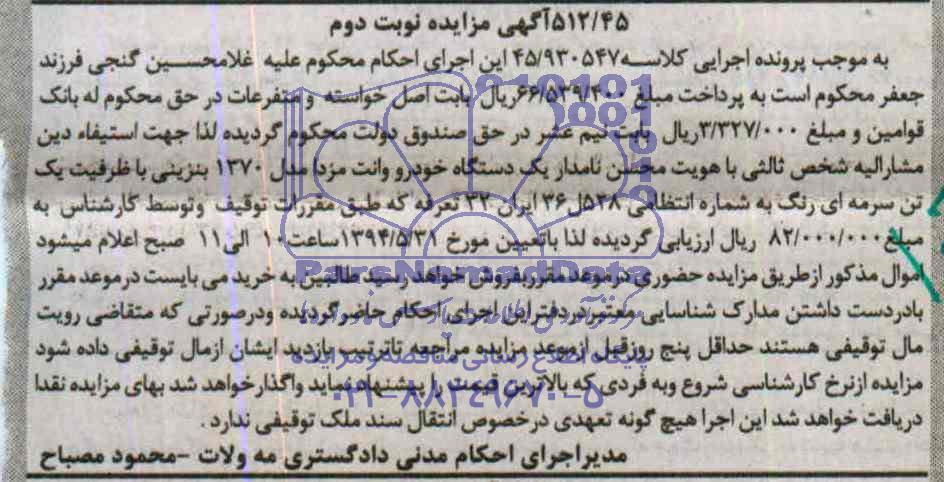 ۵۱۲/۴۵آگهی مزایده نوبت دوم
به موجب پرونده اجرایی کلاسه۴۵/۹۳۰۵۴۷ این اجرای احکام محکوم علیه غلامحسین گنجی فرزند
جعفر محکوم است به پرداخت مبلغ ۶۶/۵۳۹/۴۰۰ریال بابت اصل خواسته و متفرعات در حق محکوم له بانک
قوامین و مبلغ ۳/۳۲۷/۰۰۰ریال بابت نیم عشر در حق صندوق دولت محکوم گردیده لذا جهت استیفاء دین
مشارالیه شخص ثالثی با هویت محسن نامدار یک دستگاه خودرو وانت مزدا مدل ۱۳۷۰ بنزینی با ظرفیت یک
تن سرمه ای رنگ به شماره انتظامی ۵۳۸ل۳۶ ایران ۳۲ تعرفه که طبق مقررات توقیف وتوسط کارشناس به
مبلغ۸۲/۰۰۰/۰۰۰ ریال ارزیابی گردیده لذا باتعیین مورخ ۱۳۹۴/۵/۳۱ساعت۱۰ الی۱۱ صبح اعلام میشود
اموال مذکور ازطریق مزایده حضوری درموعد مقرربفروش خواهد رسید طالبین به خرید می بایست درموعد مقرر
بادردست داشتن مدارک شناسایی معتبردردفتراین اجرای احکام حاضرگردیده ودرصورتی که متقاضی رویت
مال توقیفی هستند حداقل پنج روزقبل ازموعد مزایده مراجعه تاترتیب بازدید ایشان ازمال توقیفی داده شود
مزایده ازنرخ کارشناسی شروع وبه فردی که بالاترین قیمت را پیشنهاد نماید واگذارخواهد شد بهای مزایده نقدا
دریافت خواهد شد این اجرا هیچ گونه تعهدی درخصوص انتقال سند ملک توقیفی ندارد .
مدیراجرای احکام مدنی دادگستری مه ولات -محمود مصباح
ParsNamadData
پایگاه اطلاع رسانی مناقصه و مزایده
۰۲۱-۸۸۳۴۹۶۷۰-۵